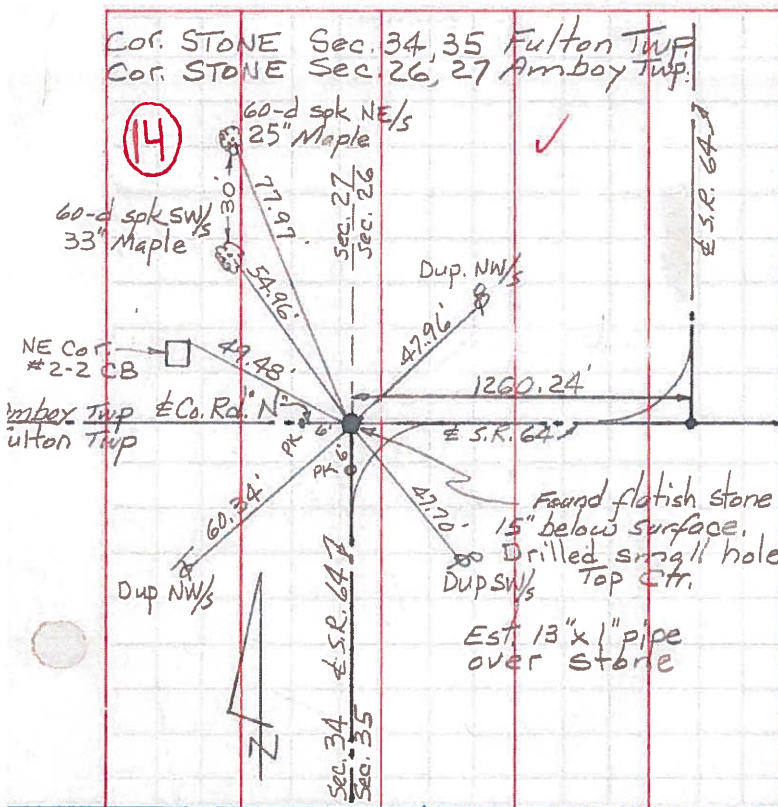 Cor. STONE Sec. 34, 35 Fulton Twp.
Cor. STONE Sec. 26, 27 Amboy Twp.
14
60-d spk NE/s
25" Maple
30'
77.97
60-d spk SW/s
33" Maple
54.96'
Sec. 27
Sec. 26
℄ S.R. 64
Dup. NW/s
47.96'
NE Cor.
#2-2 CB
49.48'
1260.24'
Amboy Twp
Fulton Twp
℄ Co. Rd. "N"
PK
6'
℄ S.R. 64
PK 6'
60.34'
Dup NW/s
47.70'
Dup SW/s
Found flatish stone
15" below surface.
Drilled small hole
Top Ctr.
Est. 13" x 1" pipe
over stone
℄ S.R. 64
N
Sec. 34
Sec. 35